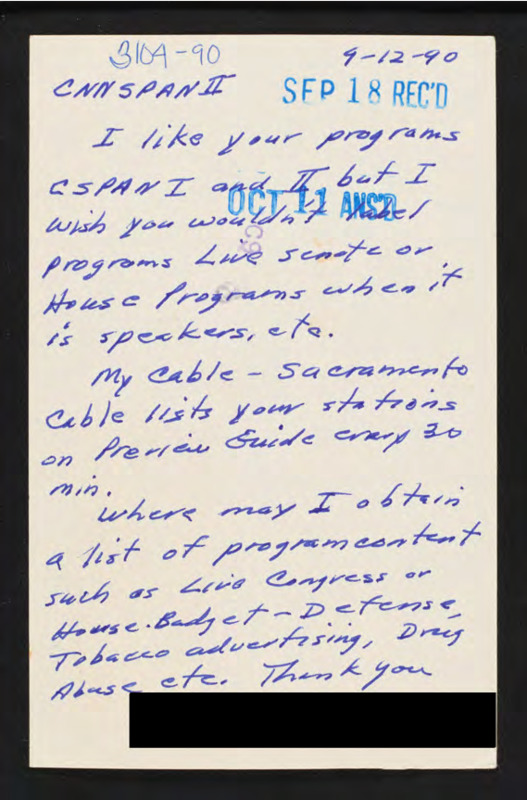 3104-90
9-12-90
CNNSPAN II
SEP 18 REC'D
I like your programs
CSPAN I and II but I
OCT 11 ANS'D
wish you wouldn't label
programs Live senate or
House Programs when it
is speakers, etc.
My Cable - Sacramento
Cable lists your stations
on Preview Guide every 30
min.
Where may I obtain
a list of program content
such as Live Congress or
House. Badget - Defense,
Tobacco advertising, Drug
Abuse etc. Thank you